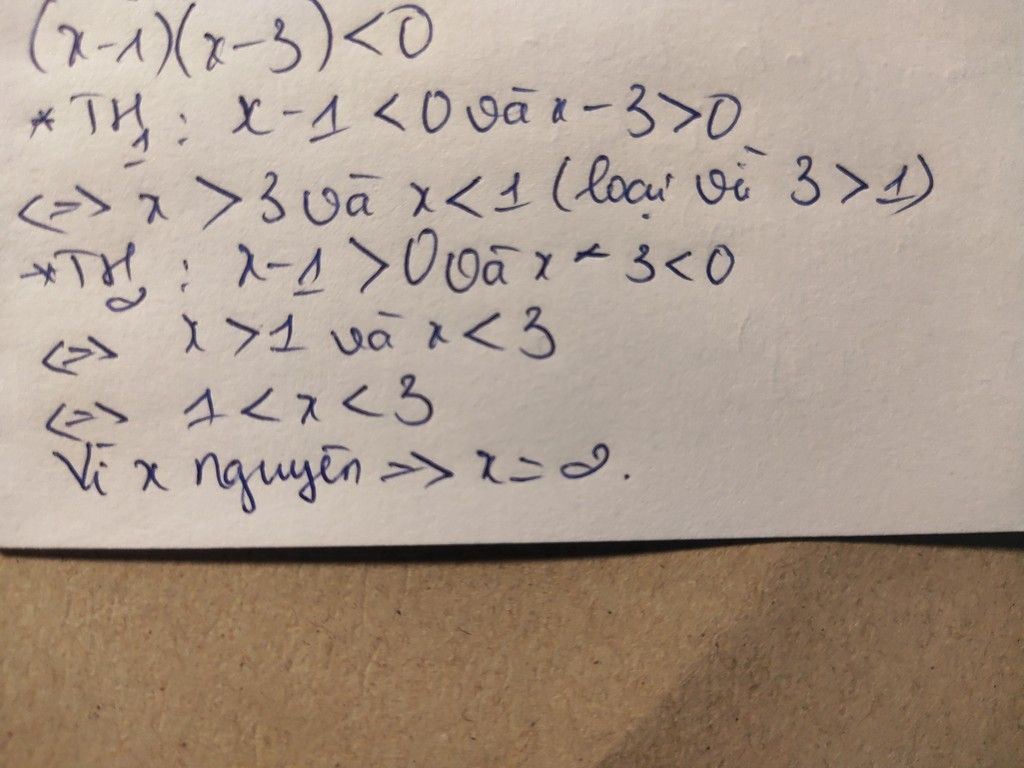 (x-1)(x-3)<0
* TH1: x-1<0 và x-3>0
<=> x>3 và x<1 (loại vì 3>1)
* TH2: x-1>0 và x-3<0
<=> x>1 và x<3
<=> 1<x<3
Vì x nguyên => x=2.